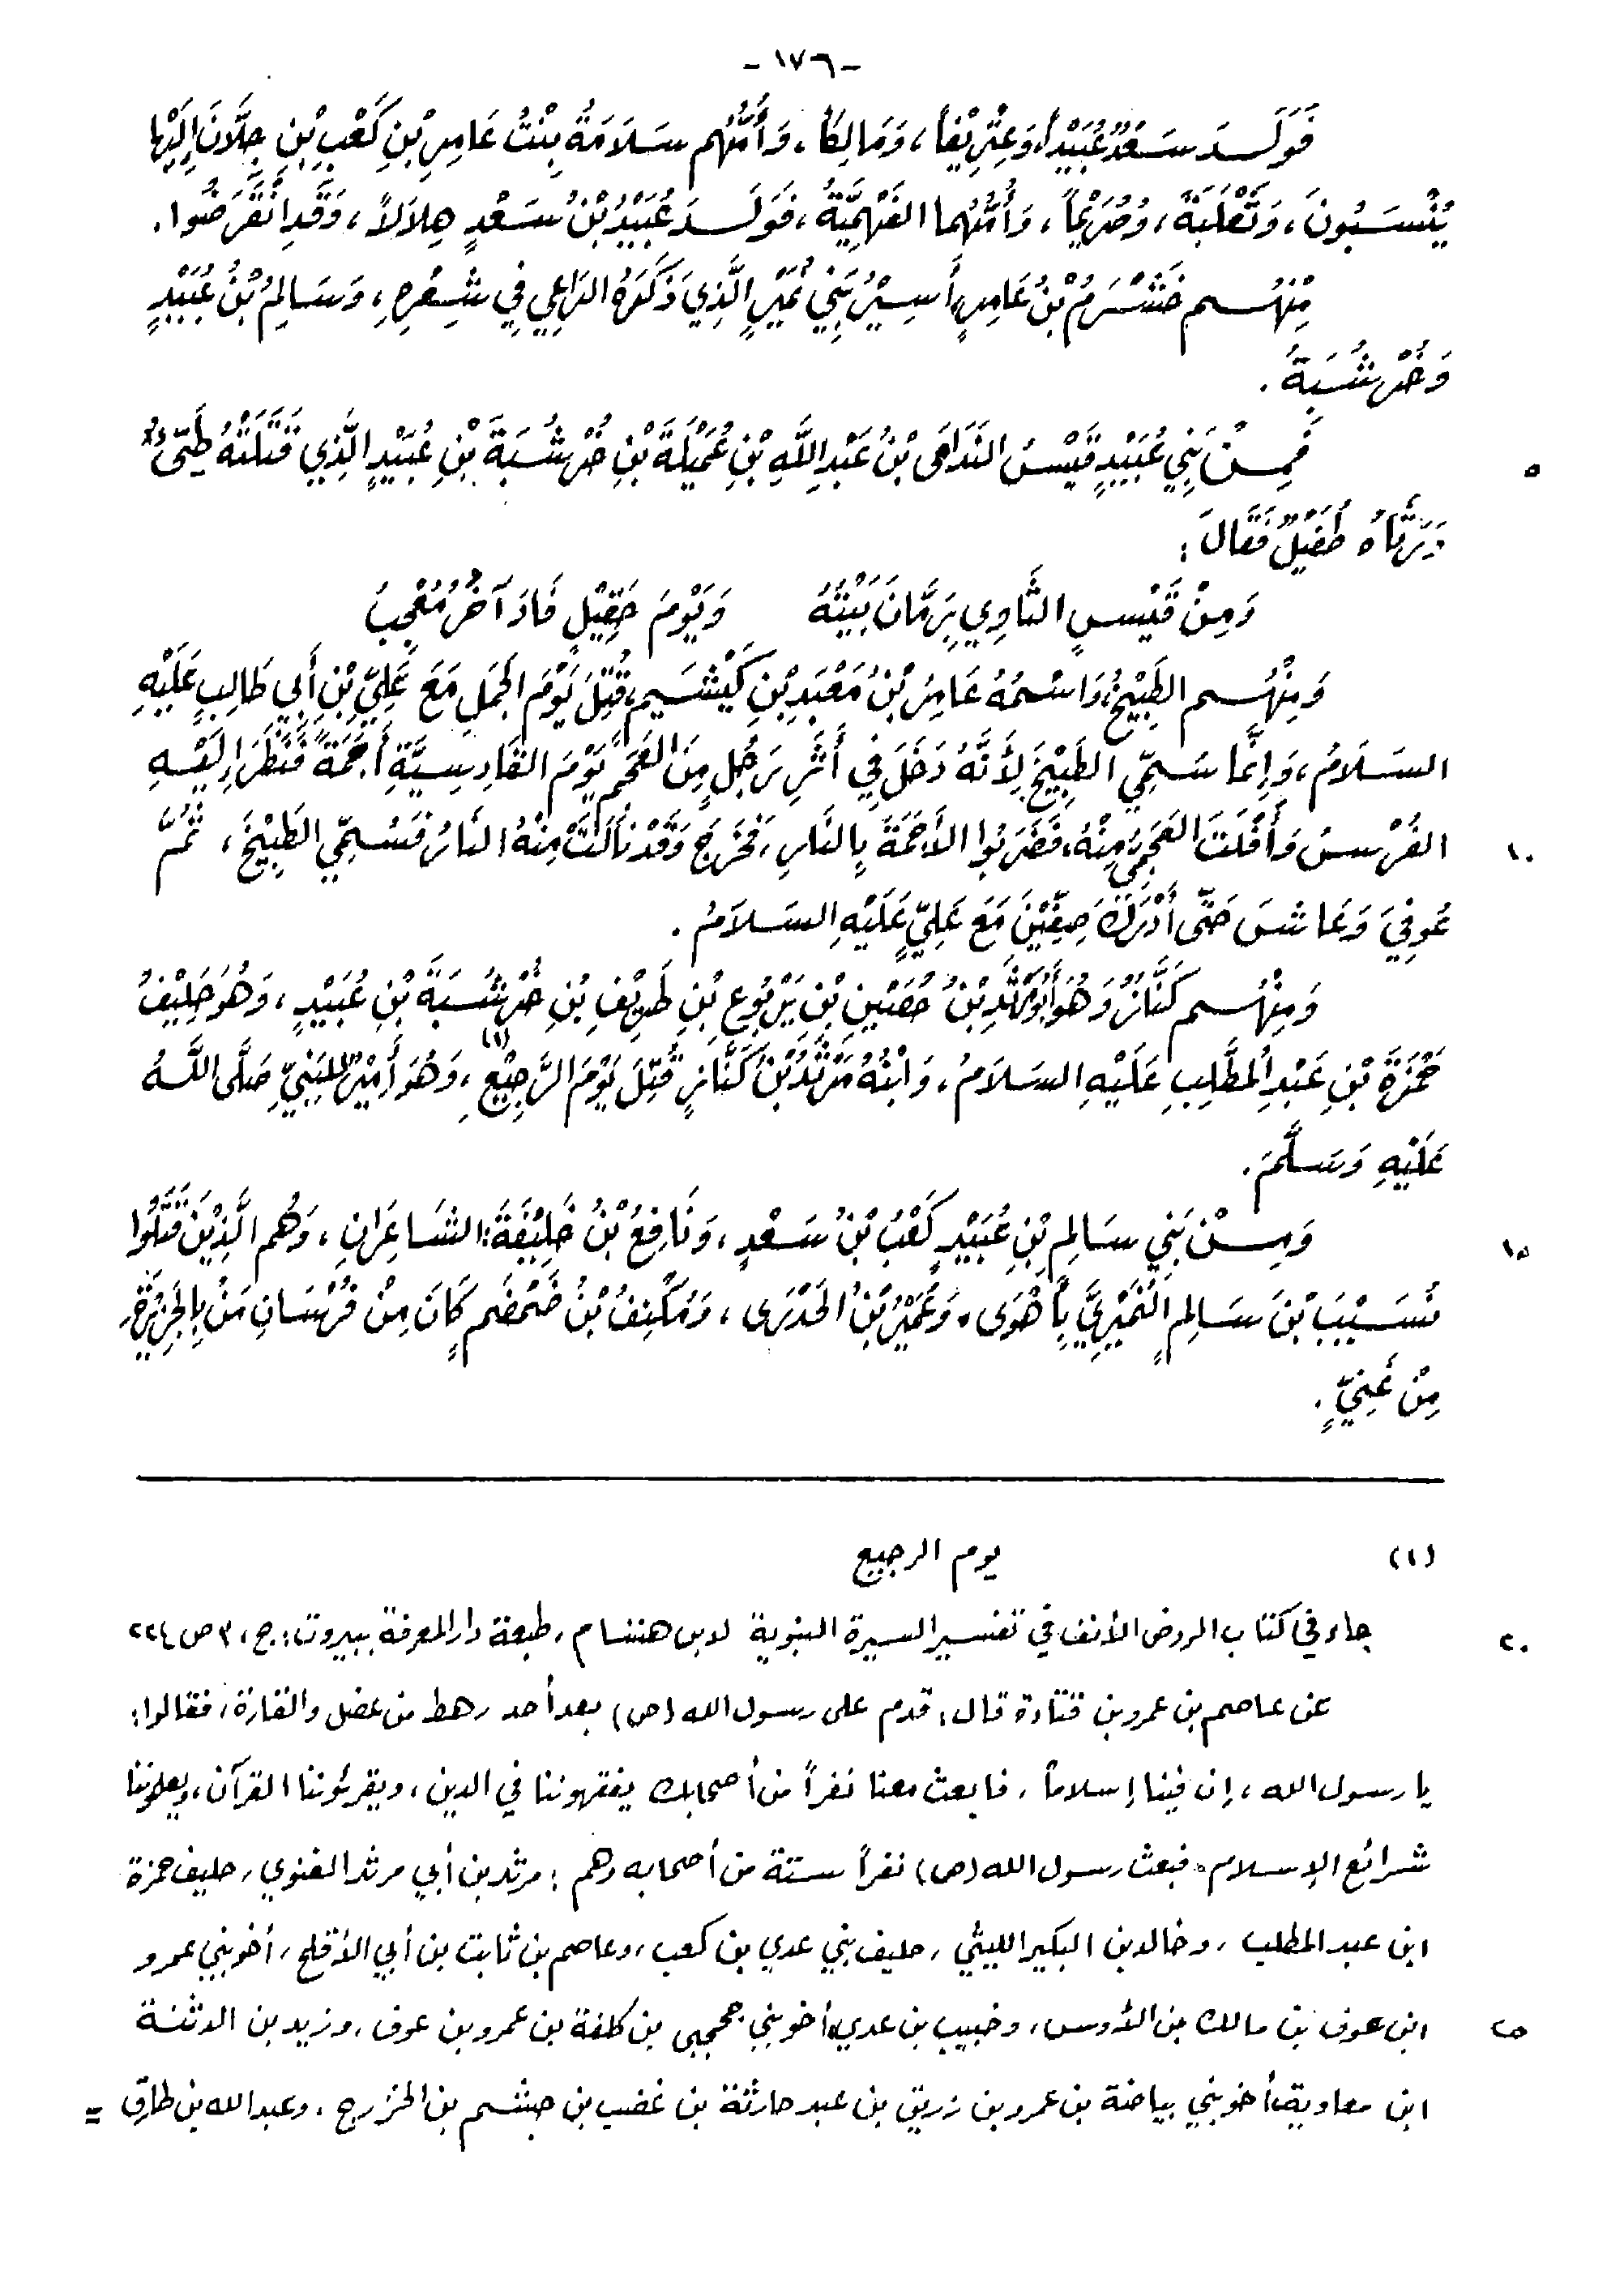 -١٧٦-
فَوَلَدَ سَعْدٌ عُبَيْداً، وَعِتْرِيْفاً، وَمَالِكاً، وَأُمُّهُم سَلَامَةُ بِنْتُ عَامِرِ بْنِ كَعْبِ بْنِ جِلَّانَ إِلَيْهَا
يُنْسَبُونَ، وَثَعْلَبَةَ، وَصُرَيْماً، وَأُمُّهُمَا الفَهْمِيَّةُ، فَوَلَدَ عُبَيْدُ بْنُ سَعْدٍ هِلَالاً، وَقَدِ انْقَرَضُوا.
مِنْهُم خَشْرَمُ بْنُ عَامِرٍ، أَسِيْرُ بَنِي نُمَيْرٍ الَّذِي ذَكَرَهُ الرَاعِي فِي شِعْرِهِ، وَسَالِمُ بْنُ عُبَيْدٍ
وَخُرْشُبَةُ.
٥ فَمِنْ بَنِي عُبَيْدٍ قَيْسُ النَدَامَى بْنُ عَبْدِ اللَّهِ بْنِ عُمَيْلَةَ بْنِ خُرْشُبَةَ بْنِ عُبَيْدٍ الَّذِي قَتَلَتْهُ طَيِّئُ
وَرَثَاهُ طُفَيْلٌ فَقَالَ:
وَمِنْ قَيْسٍ الثَّاوِي بِرَمَّانَ بَيْتُهُ وَيَوْمَ حَقِيْلٍ فَادَ آخَرُ مُعْجِبُ
وَمِنْهُم الطَبِيْخُ، وَاسْمُهُ عَامِرُ بْنُ مَعْبَدِ بْنِ كَيْشَيمٍ، قُتِلَ يَوْمَ الجَمَلِ مَعَ عَلِيِّ بْنِ أَبِي طَالِبٍ عَلَيْهِ
السَلَامُ، وَإِنَّمَا سُمِّي الطَبِيْخَ لِأَنَّهُ دَخَلَ فِي أَثَرِ رَجُلٍ مِنَ العَجَمِ يَوْمَ القَادِسِيَّةِ أَجَمَةً فَنَظَرَ إِلَيْهِ
١٠ الفُرْسُ وَأَفْلَتَ العَجَمِيُّ مِنْهُ، فَضَرَبُوا الأَجَمَةَ بِالنَارِ، فَخَرَجَ وَقَدْ نَالَتْ مِنْهُ النَارُ فَسُمِّي الطَبِيْخَ، ثُمَّ
عُوفِيَ وَعَاشَ حَتَّى أَدْرَكَ صِفِّيْنَ مَعَ عَلِيٍّ عَلَيْهِ السَلَامُ.
وَمِنْهُم كَنَّازٌ، وَهُوَ أَبُو مَرْثَدِ بْنُ حُصَيْنِ بْنِ يَرْبُوعِ بْنِ طَرِيْفِ بْنِ خُرْشُبَةَ بْنِ عُبَيْدٍ، وَهُوَ حَلِيْفُ
حَمْزَةَ بْنِ عَبْدِ المُطَّلِبِ عَلَيْهِ السَلَامُ، وَابْنُهُ مَرْثَدُ بْنُ كَنَّازٍ قُتِلَ يَوْمَ الرَّجِيْعِ (١)، وَهُوَ أَمِيْرٌ لِلنَبِيِّ صَلَّى اللَّهُ
عَلَيْهِ وَسَلَّمَ.
١٥ وَمِنْ بَنِي سَالِمِ بْنِ عُبَيْدٍ كَعْبُ بْنُ سَعْدٍ، وَنَافِعُ بْنُ خَلِيْفَةَ: الشَاعِرَانِ، وَهُم الَّذِيْنَ قَتَلُوا
نُسَيْبَ بْنَ سَالِمٍ النُمَيْرِيَّ بِأَهْوَى، وَعُمَيْرُ بْنُ الحَدْرَى، وَمُكْنِفُ بْنُ ضَمْضَمٍ كَانَ مِنْ فُرْسَانِ مَنْ بِالجَزِيْرَةِ
مِنْ غَنِيٍّ.
(١) يوم الرجيع
٢٠ جاء في كتاب الروض الأنف في تفسير السيرة النبوية لابن هشام، طبعة دار المعرفة ببيروت: ج، ٣ ص ٢٢٤
عن عاصم بن عمرو بن قتادة قال: قدم على رسول الله (ص) بعد أحد رهط من عضل والقارة، فقالوا:
يا رسول الله، إن فينا إسلاماً، فابعث معنا نفراً من أصحابك يفقهوننا في الدين، ويقرئوننا القرآن، ويعلموننا
شرائع الإسلام. فبعث رسول الله (ص) نفراً ستة من أصحابه وهم: مرثد بن أبي مرثد الغنوي، حليف حمزة
ابن عبد المطلب، وخالد بن البكير الليثي، حليف بني عدي بن كعب، وعاصم بن ثابت بن أبي الأقلح، أخو بني عمرو
٢٥ ابن عوف بن مالك بن الأوس، وخبيب بن عدي، أخو بني جحجبى بن كلفة بن عمرو بن عوف، وزيد بن الدثنة
ابن معاوية، أخو بني بياضة بن عمرو بن زريق بن عبد حارثة بن غضب بن جشم بن الخزرج، وعبد الله بن طارق =